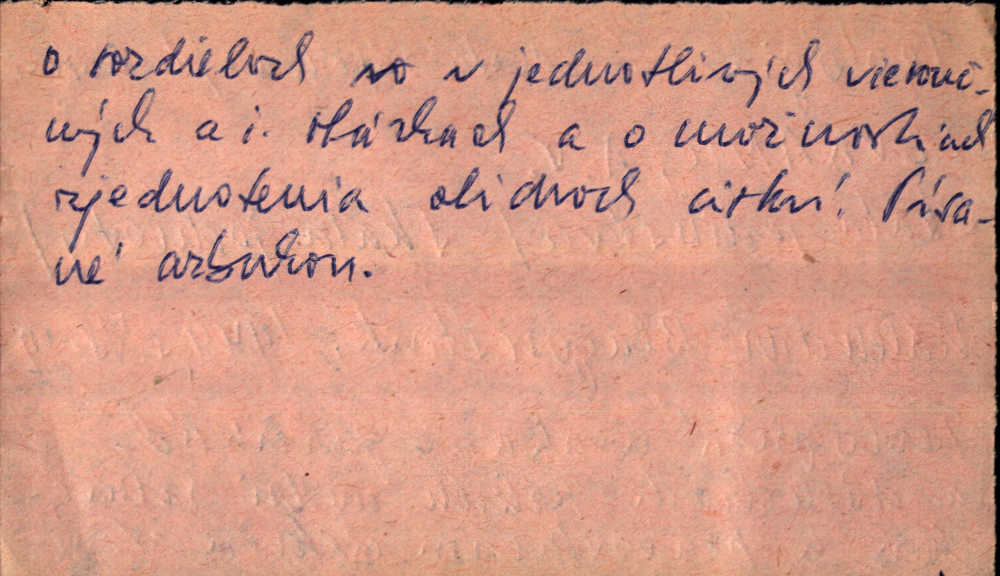 o rozdieloch v jednotlivých vierouč-
ných a i. otázkach a o možnostiach
zjednotenia obidvoch cirkví. Písa-
né azbukou.